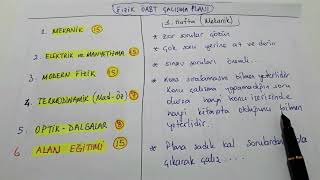 FİZİK ÖABT ÇALIŞMA PLANI
1. MEKANİK 15
2. ELEKTRİK ve MANYETİZMA 15
3. MODERN FİZİK 15
4. TERMODİNAMİK (Mad-Öz) 7
5. OPTİK-DALGALAR 8
6 ALAN EĞİTİMİ 15
1. hafta (Mekanik)
* zor sorular çözün
* Çok soru yerine az ve derin
* sınav soruları önemli.
* Konu sıralamasını bilmen yeterlidir.
Konu çalışma yapamadığın soru
olursa hangi konu içerisinde
hangi kitapta olduğunu bilmen
yeterlidir.
* Plana sadık kal sorulardan yola
çıkarak çalış....